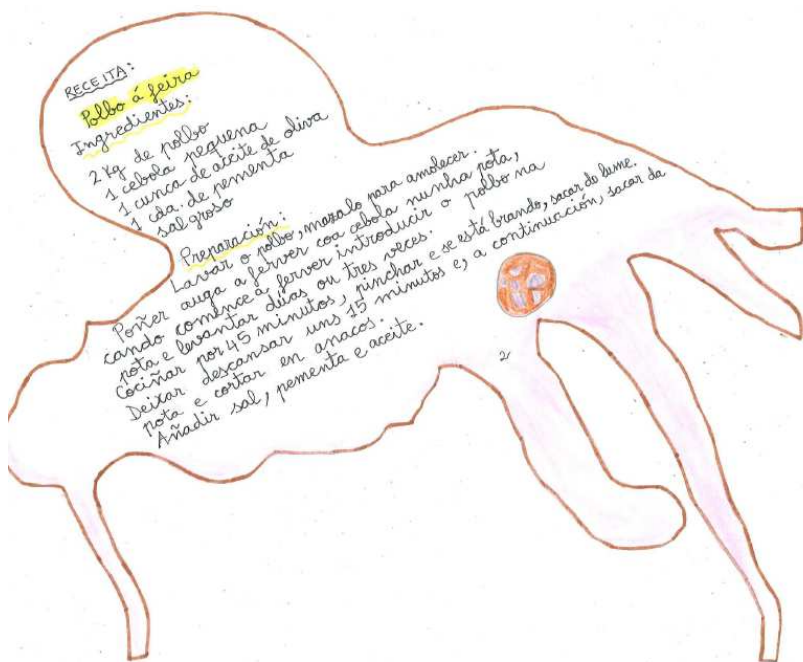 RECEITA:
Polbo á feira
Ingredientes:
2 Kg de polbo
1 cebola pequena
1 cunca de aceite de oliva
1 cda. de pementa
sal groso
Preparación:
Lavar o polbo, mazalo para amolecer.
Poñer auga a ferver coa cebola nunha pota,
cando comence á ferver introducir o polbo na
pota e levantar dúas ou tres veces.
Cociñar por 45 minutos, pinchar e se está brando, sacar do lume.
Deixar descansar uns 15 minutos e, a continuación, sacar da
pota e cortar en anacos.
Añadir sal, pementa e aceite.
2